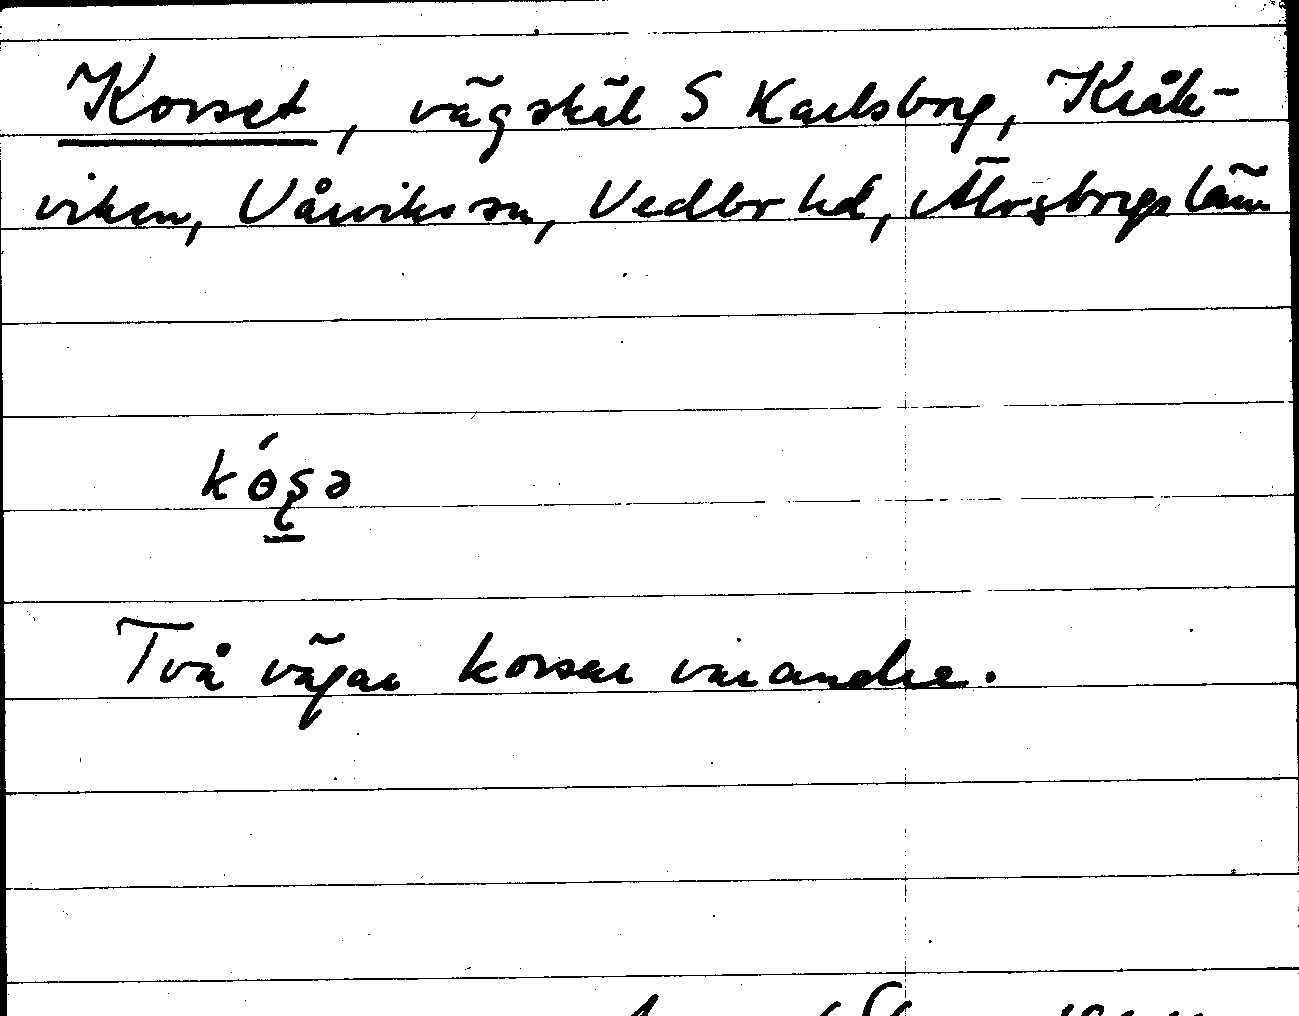 Korset, vägskäl S Karlsborg, Kråk-
viken, Vårviks sn, Vedbr hd, Älvsborgs län
kóʂə
Två vägar korsar varandra.